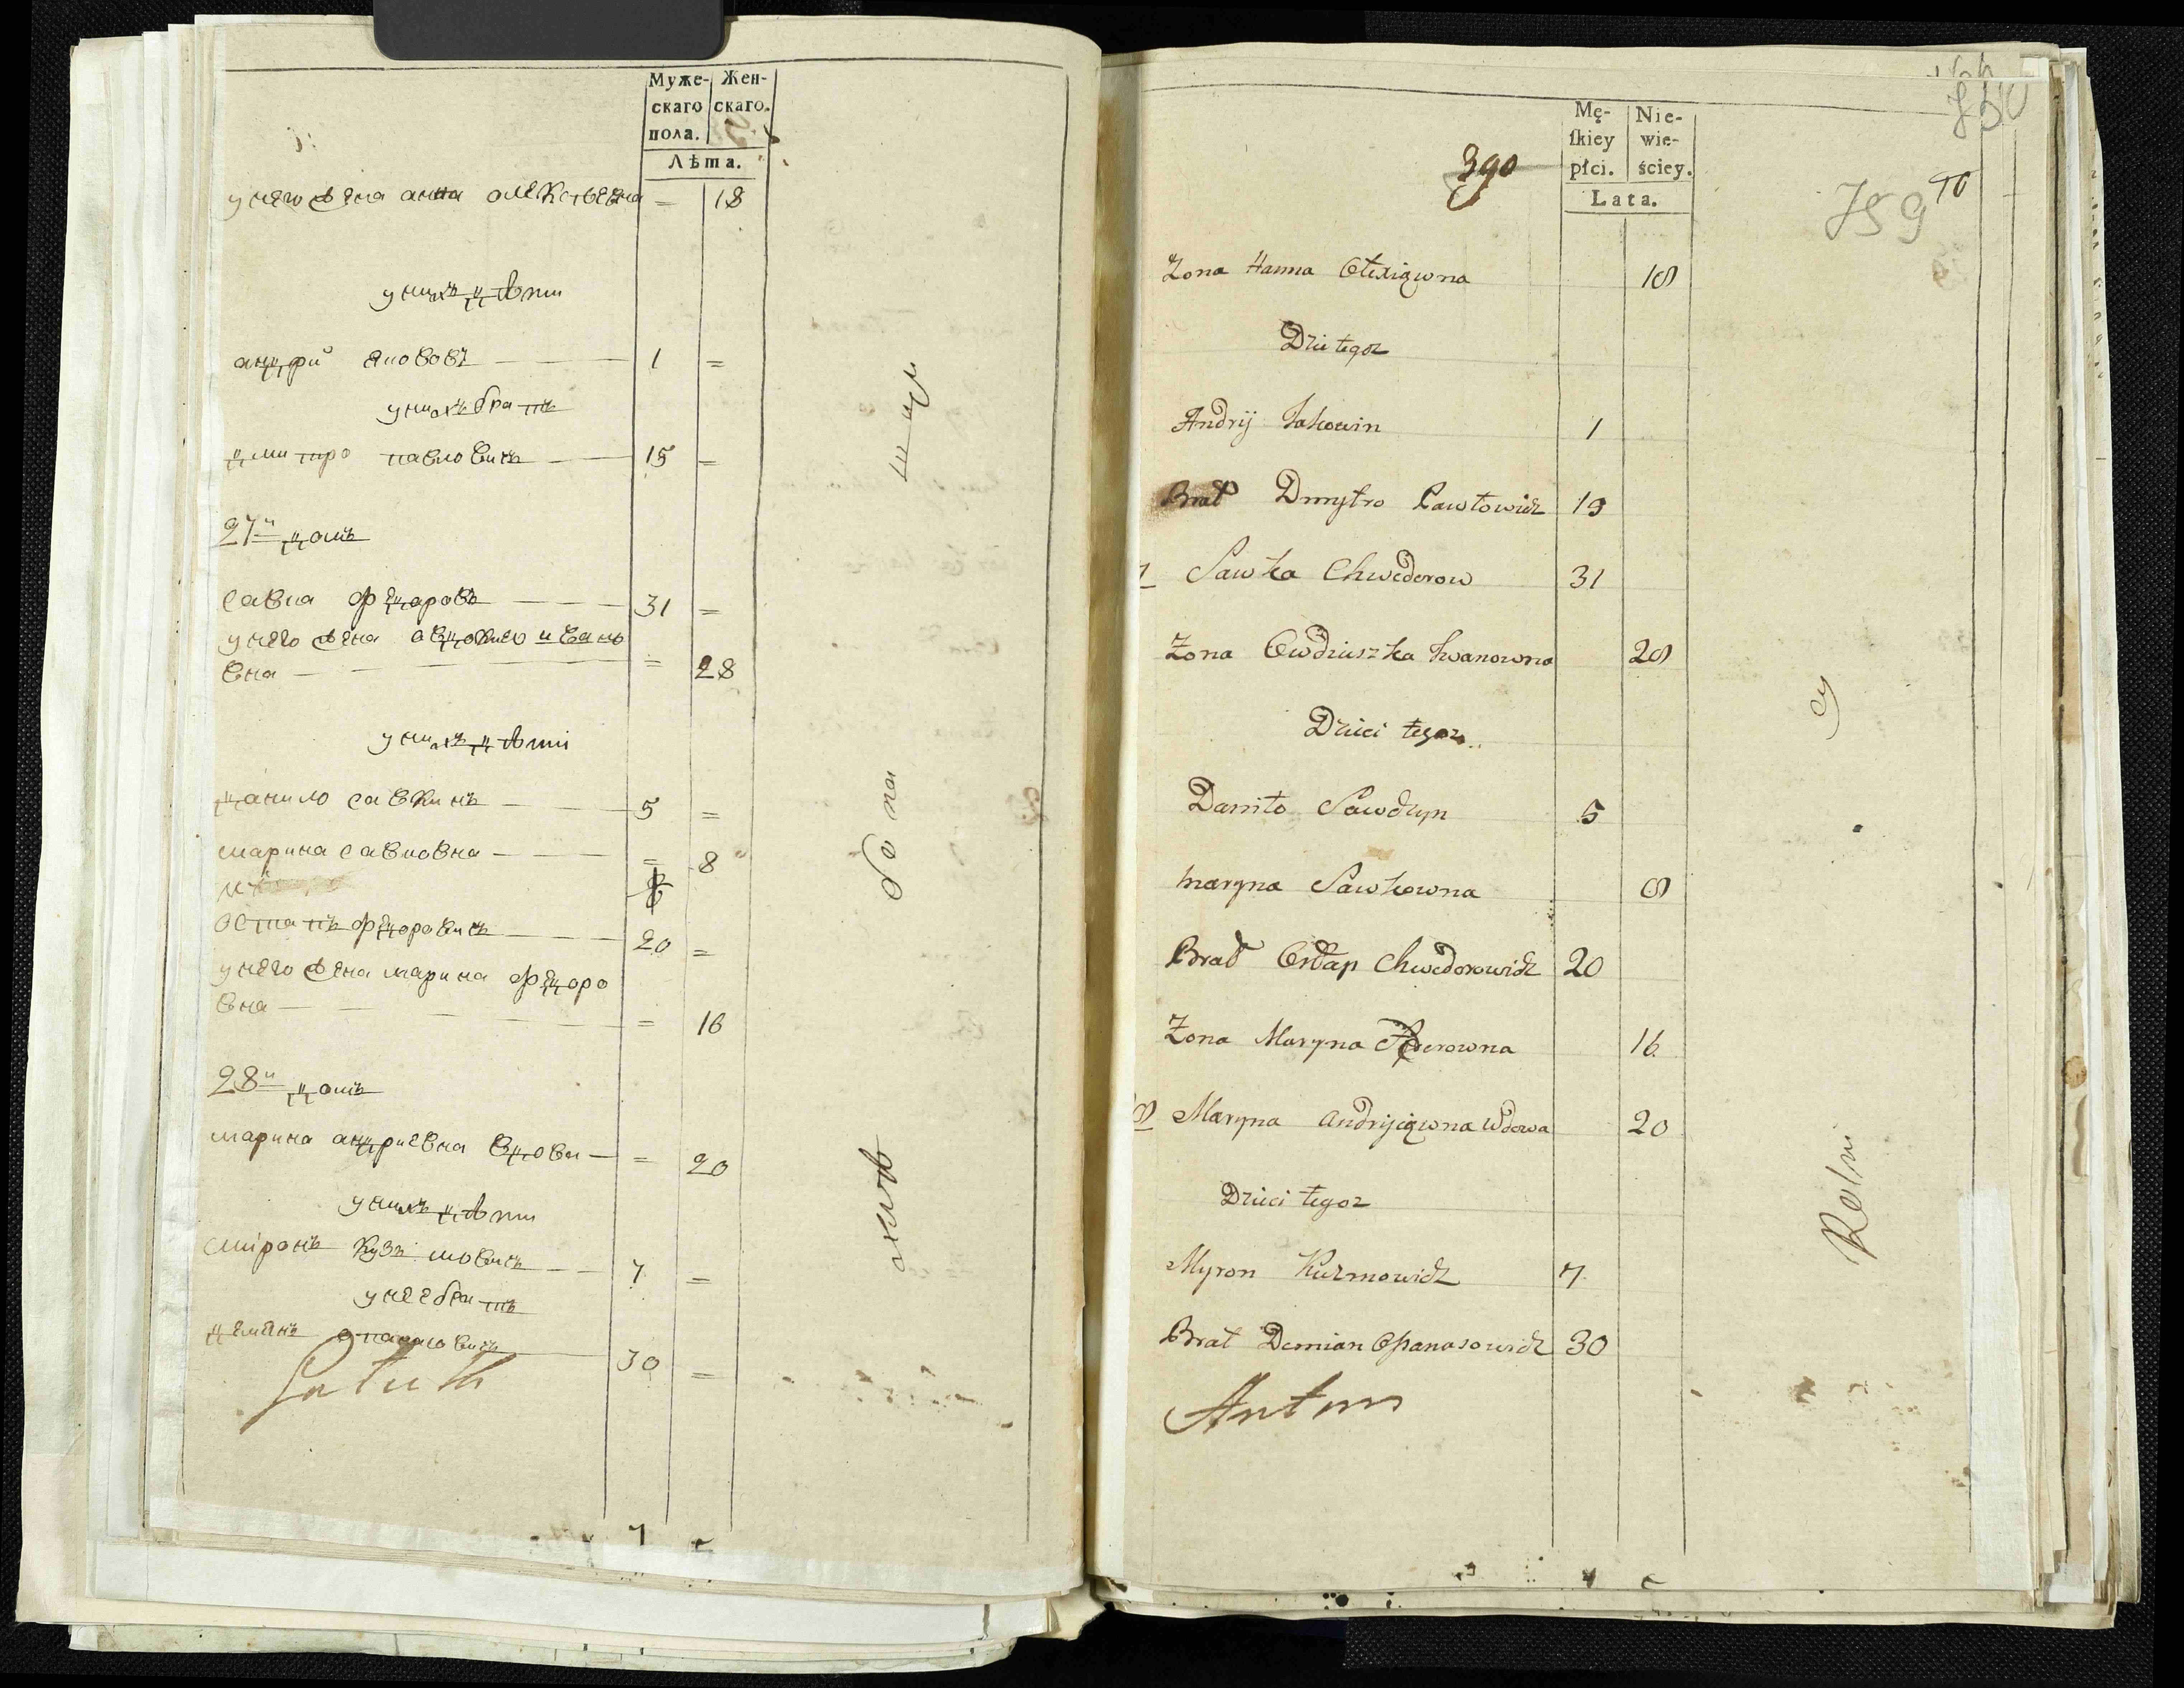 Муже-
скаго
пола.
Жен-
скаго.
Лѣта.
у него жена анна алексѣевна = 18
у нихъ дѣти
андри яковов 1 =
у нихъ братъ
дмитро павловичъ 15 =
27й домъ
савка федоровъ 31 =
у него жена авдокия ивано
вна = 28
у нихъ дѣти
данило савкинъ 5 =
марина савковна = 8
остапъ федоровичъ 20 =
у него жена марина федоро
вна = 16
28й домъ
марина андриевна вдова = 20
у нихъ дѣти
миронъ кузмовичъ 7 =
у нее братъ
демянъ опанасовичъ 30 =
7
390
Mę-
skiey
płci.
Nie-
wie-
ściey.
Lata.
Zona Hanna Olexiąwna 18
Dzie tegoz
Andrij Jakowin 1
Brat Dmytro Pawłowicz 19
Sawka Chwedorow 31
Zona Ewdiuszka Iwanowna 28
Dzieci tegoz
Daniło Sawczyn 5
Maryna Sawkowna 8
Brat Ostap Chwedorowicz 20
Zona Maryna 16
8 Maryna Andryjąwna Wdowa 20
Dzieci tegoz
Myron Kuzmowicz 7
Brat Demian Opanasowicz 30